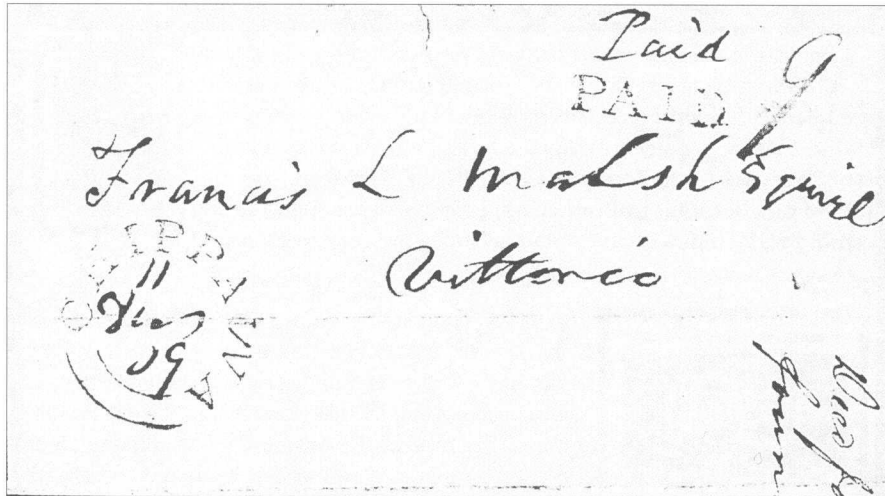 Paid 9
PAID
Francis L Walsh Esquire
Vittoria
CHIPPAWA
11